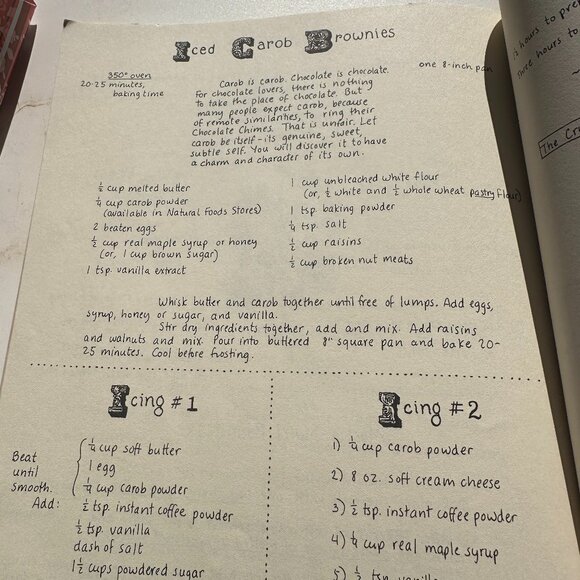 Iced Carob Brownies
350° oven
20-25 minutes,
baking time
one 8-inch pan
Carob is carob. Chocolate is chocolate.
For chocolate lovers, there is nothing
to take the place of chocolate. But
many people expect carob, because
of remote similarities, to ring their
Chocolate Chimes. That is unfair. Let
carob be itself - its genuine, sweet,
subtle self. You will discover it to have
a charm and character of its own.
½ cup melted butter
¼ cup carob powder
(available in Natural Foods Stores)
2 beaten eggs
½ cup real maple syrup or honey
(or, 1 cup brown sugar)
1 tsp. vanilla extract
1 cup unbleached white flour
(or, ½ white and ½ whole wheat pastry flour)
1 tsp. baking powder
¼ tsp. salt
½ cup raisins
½ cup broken nut meats
Whisk butter and carob together until free of lumps. Add eggs,
syrup, honey or sugar, and vanilla.
Stir dry ingredients together, add and mix. Add raisins
and walnuts and mix. Pour into buttered 8" square pan and bake 20-
25 minutes. Cool before frosting.
Icing #1
Beat
until
smooth.
Add:
¼ cup soft butter
1 egg
¼ cup carob powder
½ tsp. instant coffee powder
½ tsp. vanilla
dash of salt
1½ cups powdered sugar
Icing #2
1) ¼ cup carob powder
2) 8 oz. soft cream cheese
3) ½ tsp. instant coffee powder
4) ¼ cup real maple syrup
5) ½ tsp. vanilla
hours to
Three hours to
The